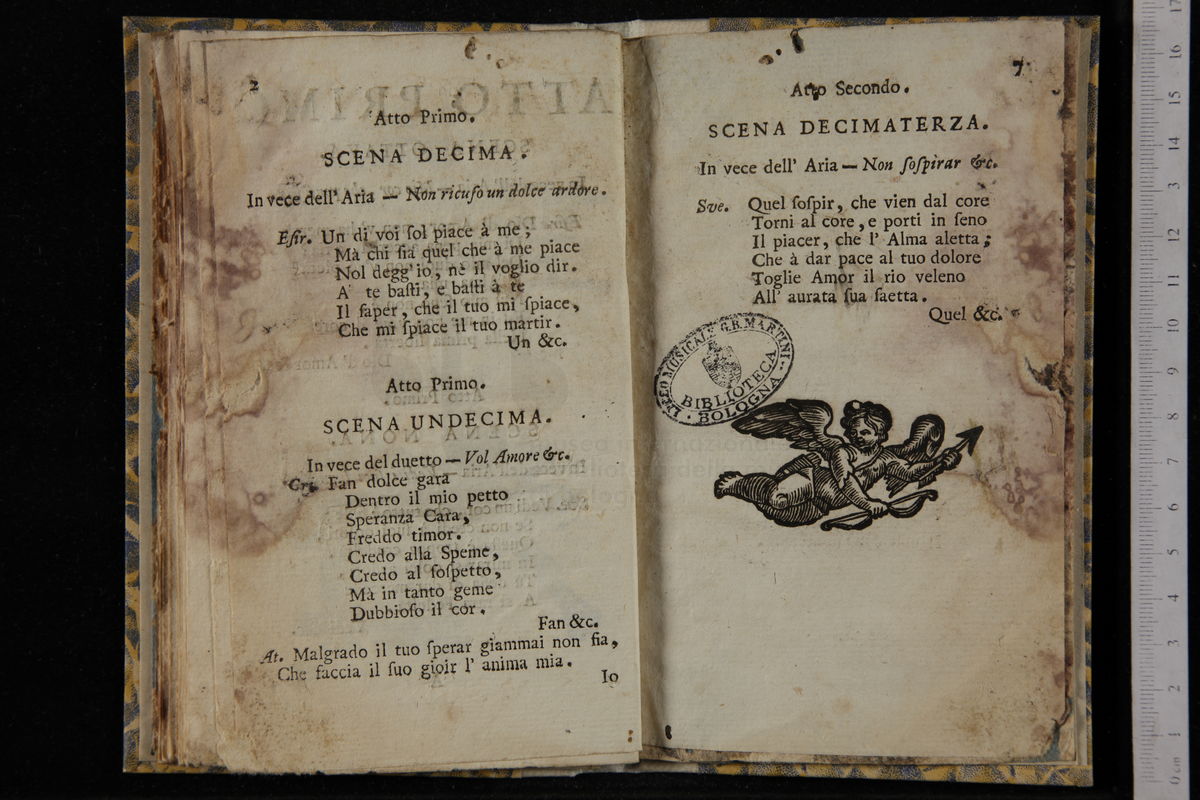 2
Atto Primo.
SCENA DECIMA.
In vece dell' Aria — Non ricuſo un dolce ardore.
Eſir. Un di voi ſol piace à me;
Mà chi ſia quel che à me piace
Nol degg' io, nè il voglio dir.
A' te baſti, e baſti à te
Il ſaper, che il tuo mi ſpiace,
Che mi ſpiace il tuo martir.
Un &c.
Atto Primo.
SCENA UNDECIMA.
In vece del duetto — Vol Amore &c.
Cri. Fan dolce gara
Dentro il mio petto
Speranza Cara,
Freddo timor.
Credo alla Speme,
Credo al ſoſpetto,
Mà in tanto geme
Dubbioſo il cor.
Fan &c.
At. Malgrado il tuo ſperar giammai non fia,
Che faccia il ſuo gioir l' anima mia.
Io
7
Atto Secondo.
SCENA DECIMATERZA.
In vece dell' Aria — Non ſoſpirar &c.
Sve. Quel ſoſpir, che vien dal core
Torni al core, e porti in ſeno
Il piacer, che l' Alma aletta;
Che à dar pace al tuo dolore
Toglie Amor il rio veleno
All' aurata ſua ſaetta.
Quel &c.
LICEO MUSICALE G.B. MARTINI
BIBLIOTECA
BOLOGNA